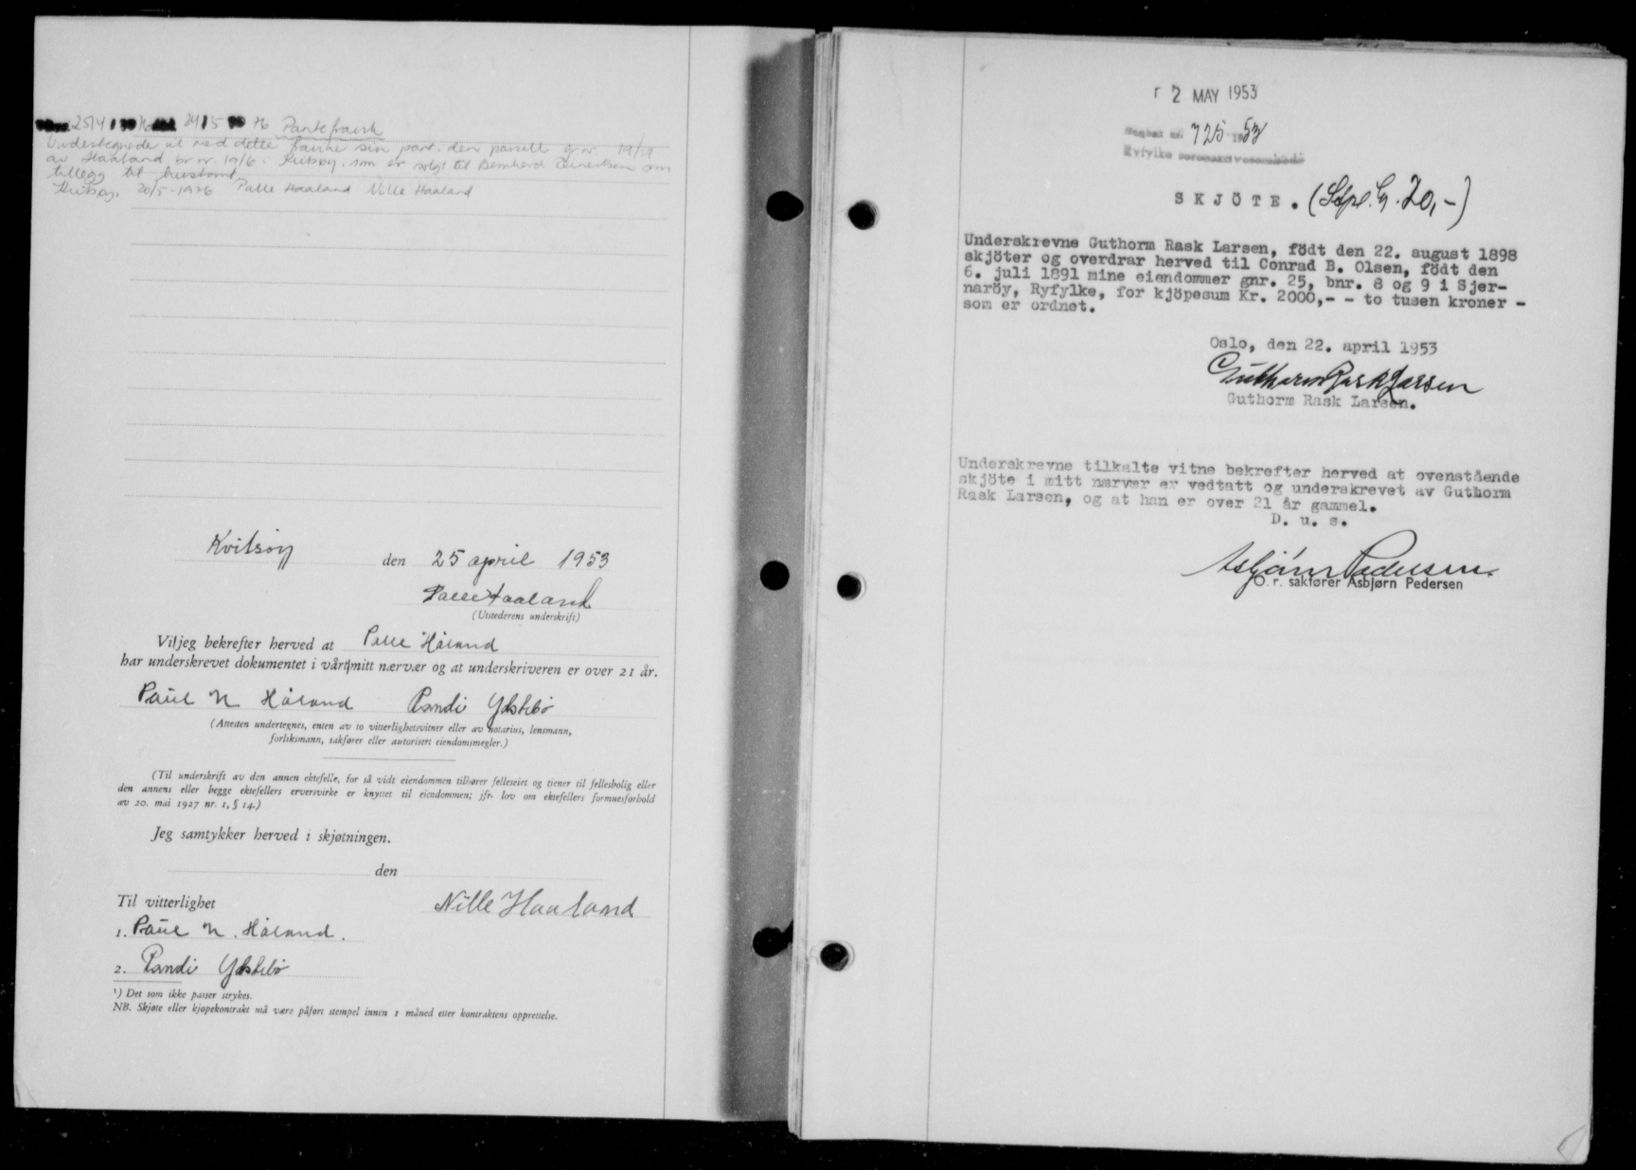 Pantefravik
Undertegnede
av Haaland br nr. 19/6
tillegg til
20/5-1926 Palle Haaland Nille Haaland
Kvitsøy den 25 april 1953
Palle Haaland
(Utstederens underskrift)
Vi/jeg bekrefter herved at Palle Håland
har underskrevet dokumentet i vårt/mitt nærvær og at underskriveren er over 21 år.
Paul N Håland Randi Ydstebø
(Attesten undertegnes, enten av to vitterlighetsvitner eller av notarius, lensmann,
forliksmann, sakfører eller autorisert eiendomsmegler.)
(Til underskrift av den annen ektefelle, for så vidt eiendommen tilhører felleseiet og tjener til fellesbolig eller
den annens eller begge ektefellers ervervsvirke er knyttet til eiendommen; jfr. lov om ektefellers formuesforhold
av 20. mai 1927 nr. 1, § 14.)
Jeg samtykker herved i skjøtningen.
den
Til vitterlighet Nille Haaland
1. Paul N. Håland.
2. Randi Ydstebø
¹) Det som ikke passer strykes.
NB. Skjøte eller kjøpekontrakt må være påført stempel innen 1 måned etter kontraktens opprettelse.
2 MAY 1953
Dagbok nr. 725 1953
Ryfylke sorenskriverembede
SKJÖTE. (Stpl. kr. 20,-)
Underskrevne Guthorm Rask Larsen, födt den 22. august 1898
skjöter og overdrar herved til Conrad B. Olsen, födt den
6. juli 1891 mine eiendommer gnr. 25, bnr. 8 og 9 i Sjer-
naröy, Ryfylke, for kjöpesum Kr. 2000,- - to tusen kroner -
som er ordnet.
Oslo, den 22. april 1953
Guthorm Rask Larsen
Guthorm Rask Larsen.
Underskrevne tilkalte vitne bekrefter herved at ovenstående
skjöte i mitt nærvær er vedtatt og underskrevet av Guthorm
Rask Larsen, og at han er over 21 år gammel.
D. u. s.
Asbjørn Pedersen
O. r. sakfører Asbjørn Pedersen